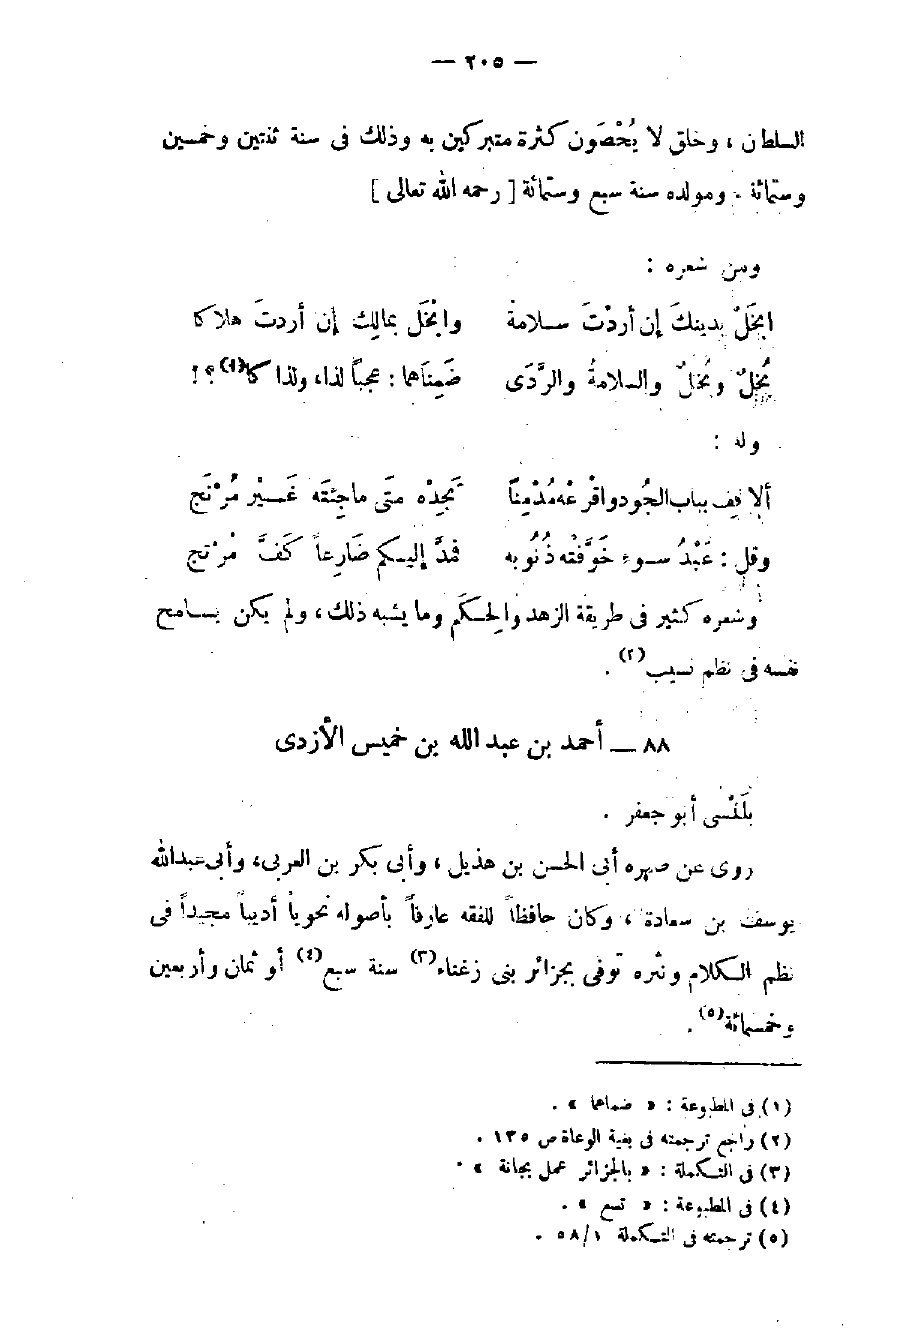 — ٢٠٥ —
السلطان ، وخلق لا يُحْصَون كثرة متبركين به وذلك فى سنة ثنتين وخمسين
وستمائة . ومولده سنة سبع وستمائة [ رحمه الله تعالى ]
ومن شعره :
ابخَلْ بدينكَ إن أردْتَ سلامة وابْخَل بمالِك إن أردتَ هلاكا
بُخلٌ وبُخلٌ والسلامةُ والرَّدَى ضَمِنَاهما : عجباً لذا، ولذا كا(١)؟!
وله :
ألا قِف بباب الجُود واقْرعْه مُدْمِنًا تَجِدْه متَى ما جئتَه غَـيْر مُرْتَج
وقل : عَبْدُ سوءٍ خَوَّفَتْه ذُنُوبه فمدَّ إليكم ضَارِعاً كَفَّ مُرْتج
وشعره كثير فى طريقة الزهد والحِكَم وما يشبه ذلك ، ولم يكن يسامح
نفسه فى نظم نسيب(٢) .
٨٨ — أحمد بن عبد الله بن خميس الأزدى
بلَنْسى أبو جعفر .
روى عن صهره أبى الحسن بن هذيل ، وأبى بكر بن العربى، وأبى عبد الله
يوسف بن سعادة ، وكان حافظاً للفقه عارفاً بأصوله نحوياً أديباً مجيداً فى
نظم الكلام ونثره توفى بجزائر بنى زغناء(٣) سنة سبع(٤) أو ثمان وأربعين
وخمسمائة(٥) .
(١) فى المطبوعة : « ضماهما » .
(٢) راجع ترجمته فى بغية الوعاة ص ١٣٥ .
(٣) فى التكملة : « بالجزائر عمل بجانة » .
(٤) فى المطبوعة : « تسع » .
(٥) ترجمته فى التكملة ٥٨/١ .